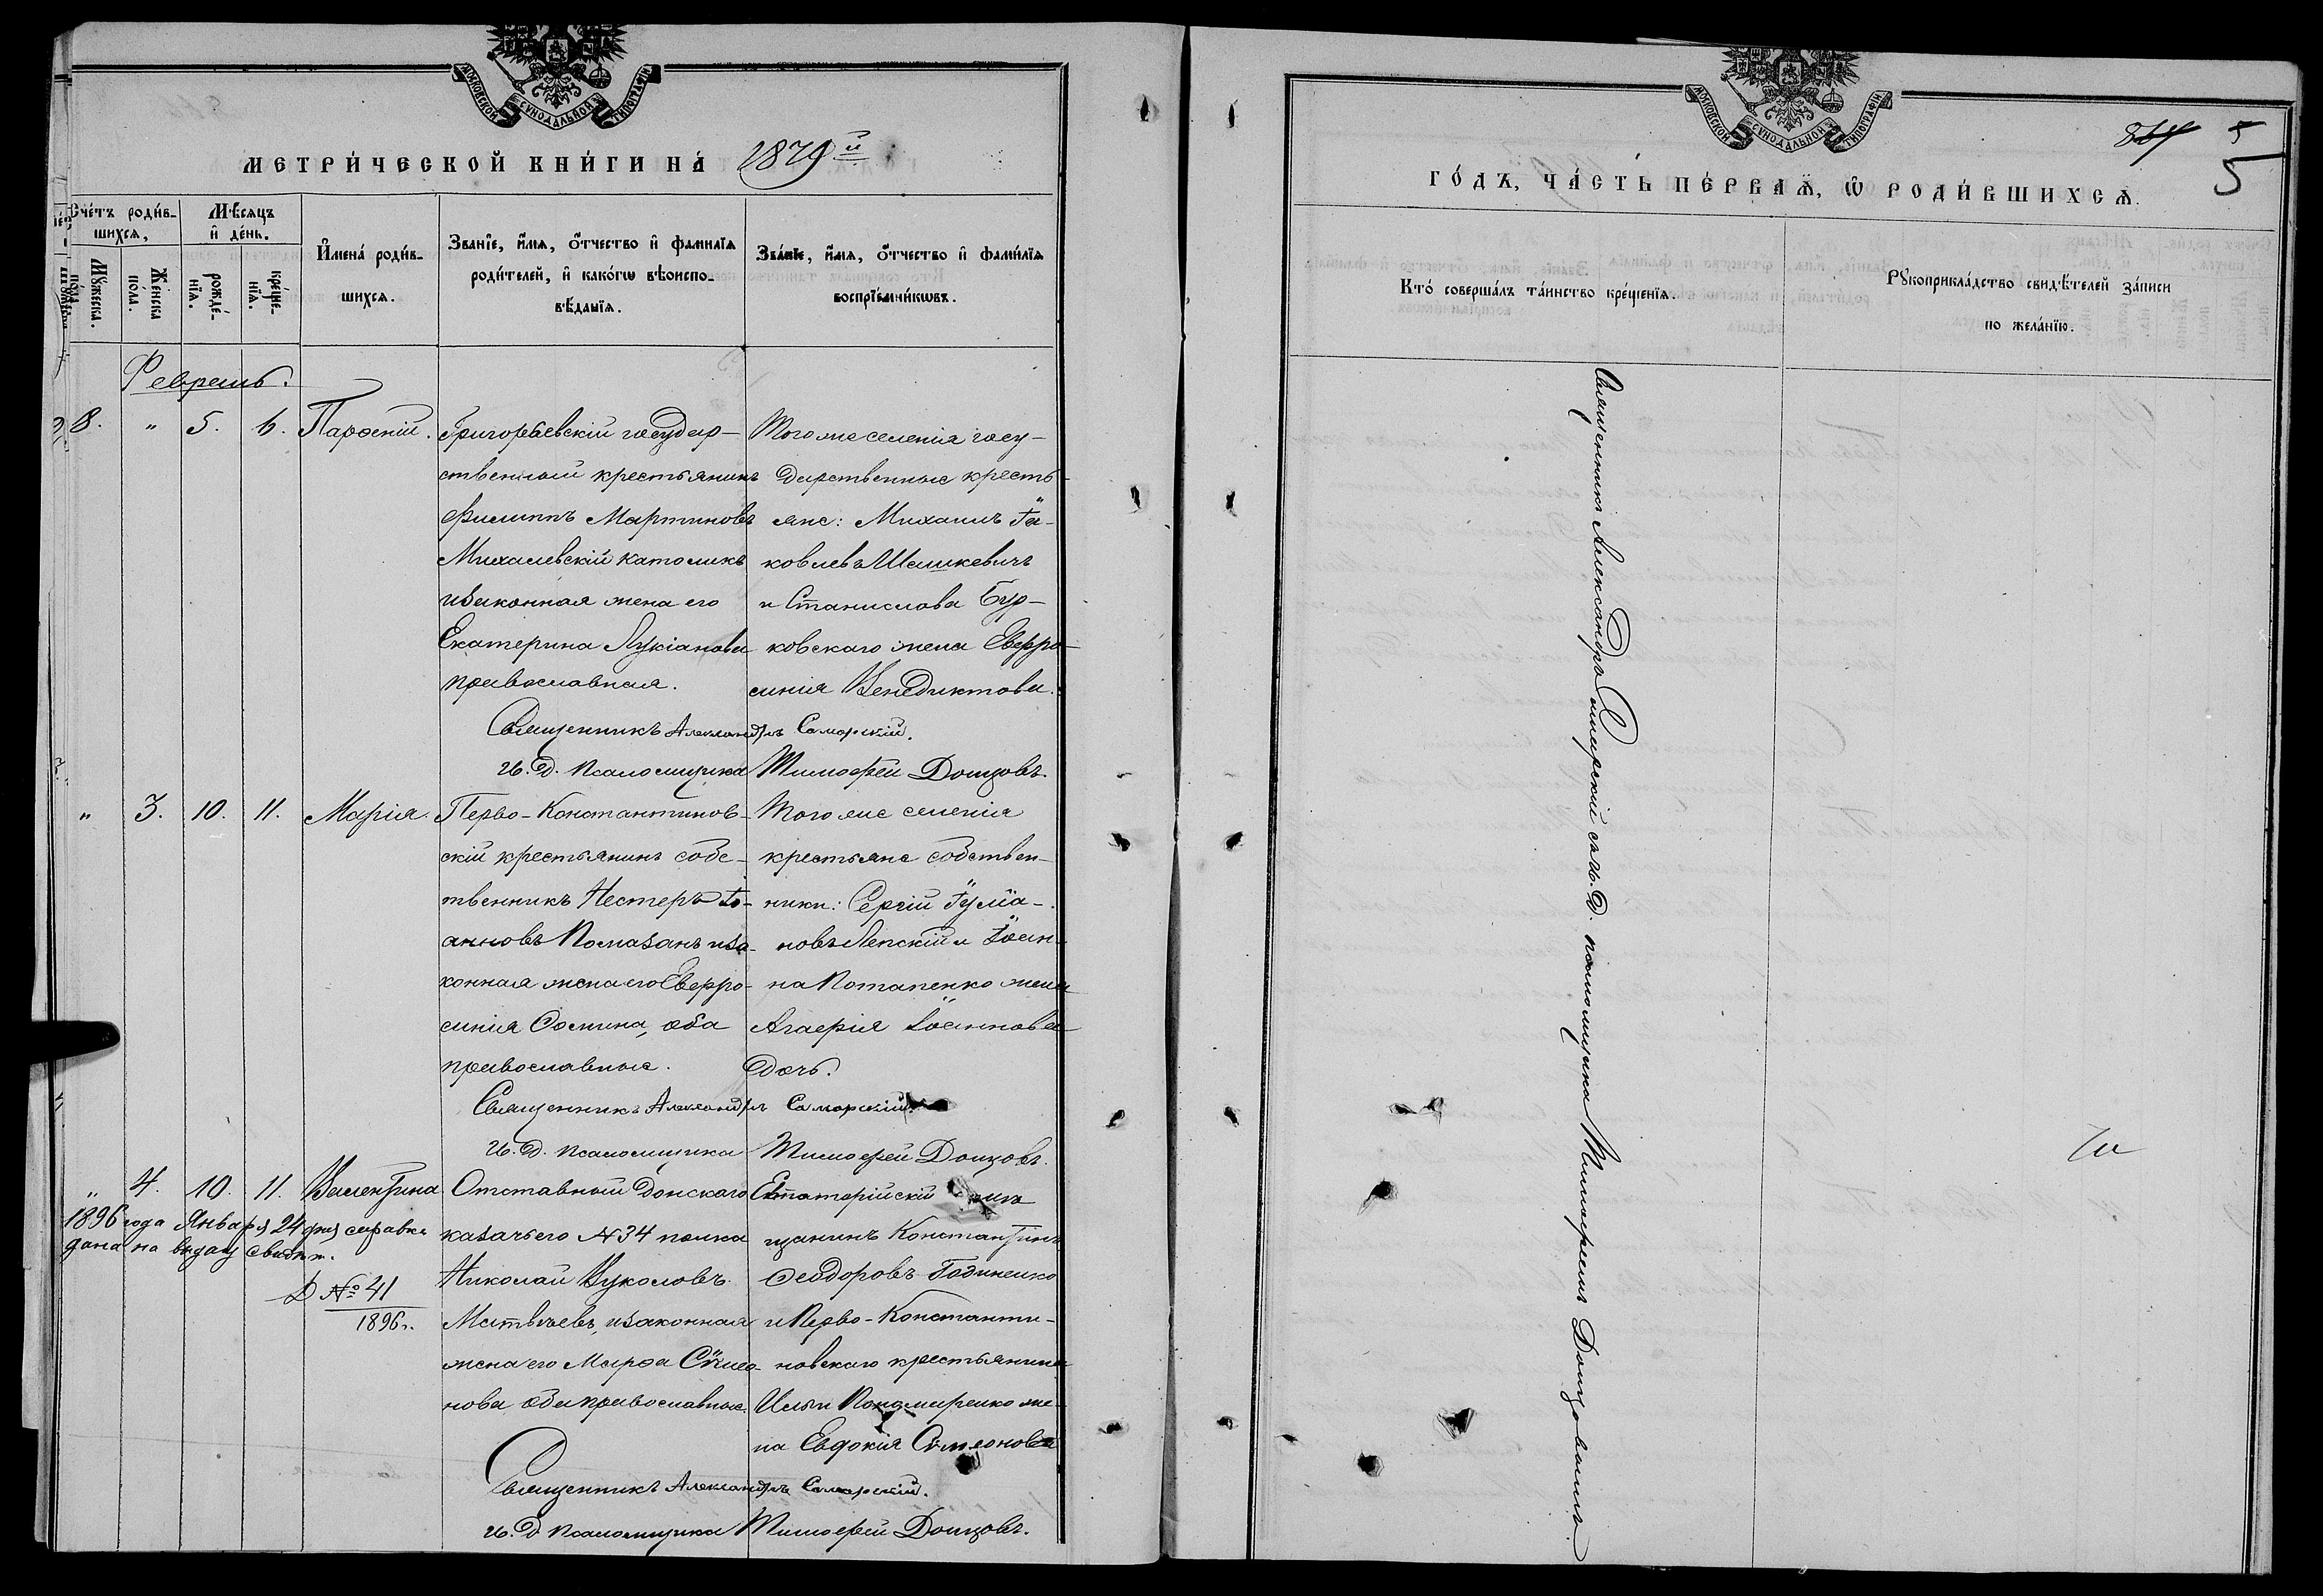 МОСКОВСКОЙ СѴНОДАЛЬНОЙ ТИПОГРАФІИ
МЕТРИ́ЧЕСКОЙ КНИ́ГИ НА́ 1879й
Сче́тъ роди́в-
шихсѧ,
Мѣсяцъ
и҆ де́нь.
Мꙋ́жеска по́ла.
Же́нска по́ла.
рожде́-
нїѧ.
креще́-
нїѧ.
И҆мена̀ роди́в-
шихсѧ.
Зва́нїе, и҆́мѧ, ѻ҆́тчество и҆ фамилїѧ
роди́телей, и҆ како́гѡ вѣроиспо-
вѣ́данїѧ.
Зва́нїе, и҆́мѧ, ѻ҆́тчество и҆ фами́лїѧ
воспрїе́мникѡвъ.
Февраль.
8. " 5. 6.
Григорьевскій государ-
ственный крестьянинъ
Филиппъ Мартиновъ
Михалевскій католикъ
изаконная жена его
Екатерина Лукіанова
православная.
Того же селенія госу-
дарственные кресть-
яне: Михаилъ Іа-
ковлевъ Шешкевичъ
и Станислава Бур-
ковскаго жена Евфро-
синія Венедиктова.
Священникъ Александръ Самарскій.
И. Д. Псаломщика Тимофей Донцовъ.
" 3. 10. 11. Марія.
Перво-Константинов-
скій крестьянинъ собс-
твенникъ Нестеръ Іо-
анновъ Помазанъ иза-
конная жена его Евфро-
синія Фомина, оба
православные.
Того же селенія
крестьяне собствен-
ники: Сергій Іуліа-
новъ Лепскій и Іоан-
на Потапенко жена
Агафія Іоаннова
дочь.
Священникъ Александръ Самарскій.
И. Д. Псаломщика Тимофей Донцовъ.
" 4. 10. 11. Валентина
1896 года Января 24 дня справка
дана на выдачу свидѣт.
D № 41
1896 г.
Отставный Донскаго
казачьего № 34 полка
Николай Вуколовъ
Матвѣевъ, изаконная
жена его Марфа Сѵмео-
нова оба православные.
Евпаторійскій
щанинъ Константинъ
Феодоровъ Годиненко
и Перво-Константи-
новскаго крестьянина
Ильи Пономаренко же-
на Евдокія Сѵмеонова
Священникъ Александръ Самарскій.
И. Д. Псаломщика Тимофей Донцовъ.
МОСКОВСКОЙ СѴНОДАЛЬНОЙ ТИПОГРАФІИ
5
5
ГО́ДЪ, ЧА́СТЬ ПЕ́РВАѦ, Ѡ҆ РОДИ́ВШИХСѦ.
Кто̀ соверша́лъ та́инство креще́нїѧ.
Рꙋкоприкла́дство свидѣ́телей за́писи
по жела́нїю.
Священникъ Александръ Самарскій съ И. Д. псаломщика Тимофеемъ Донцовымъ.